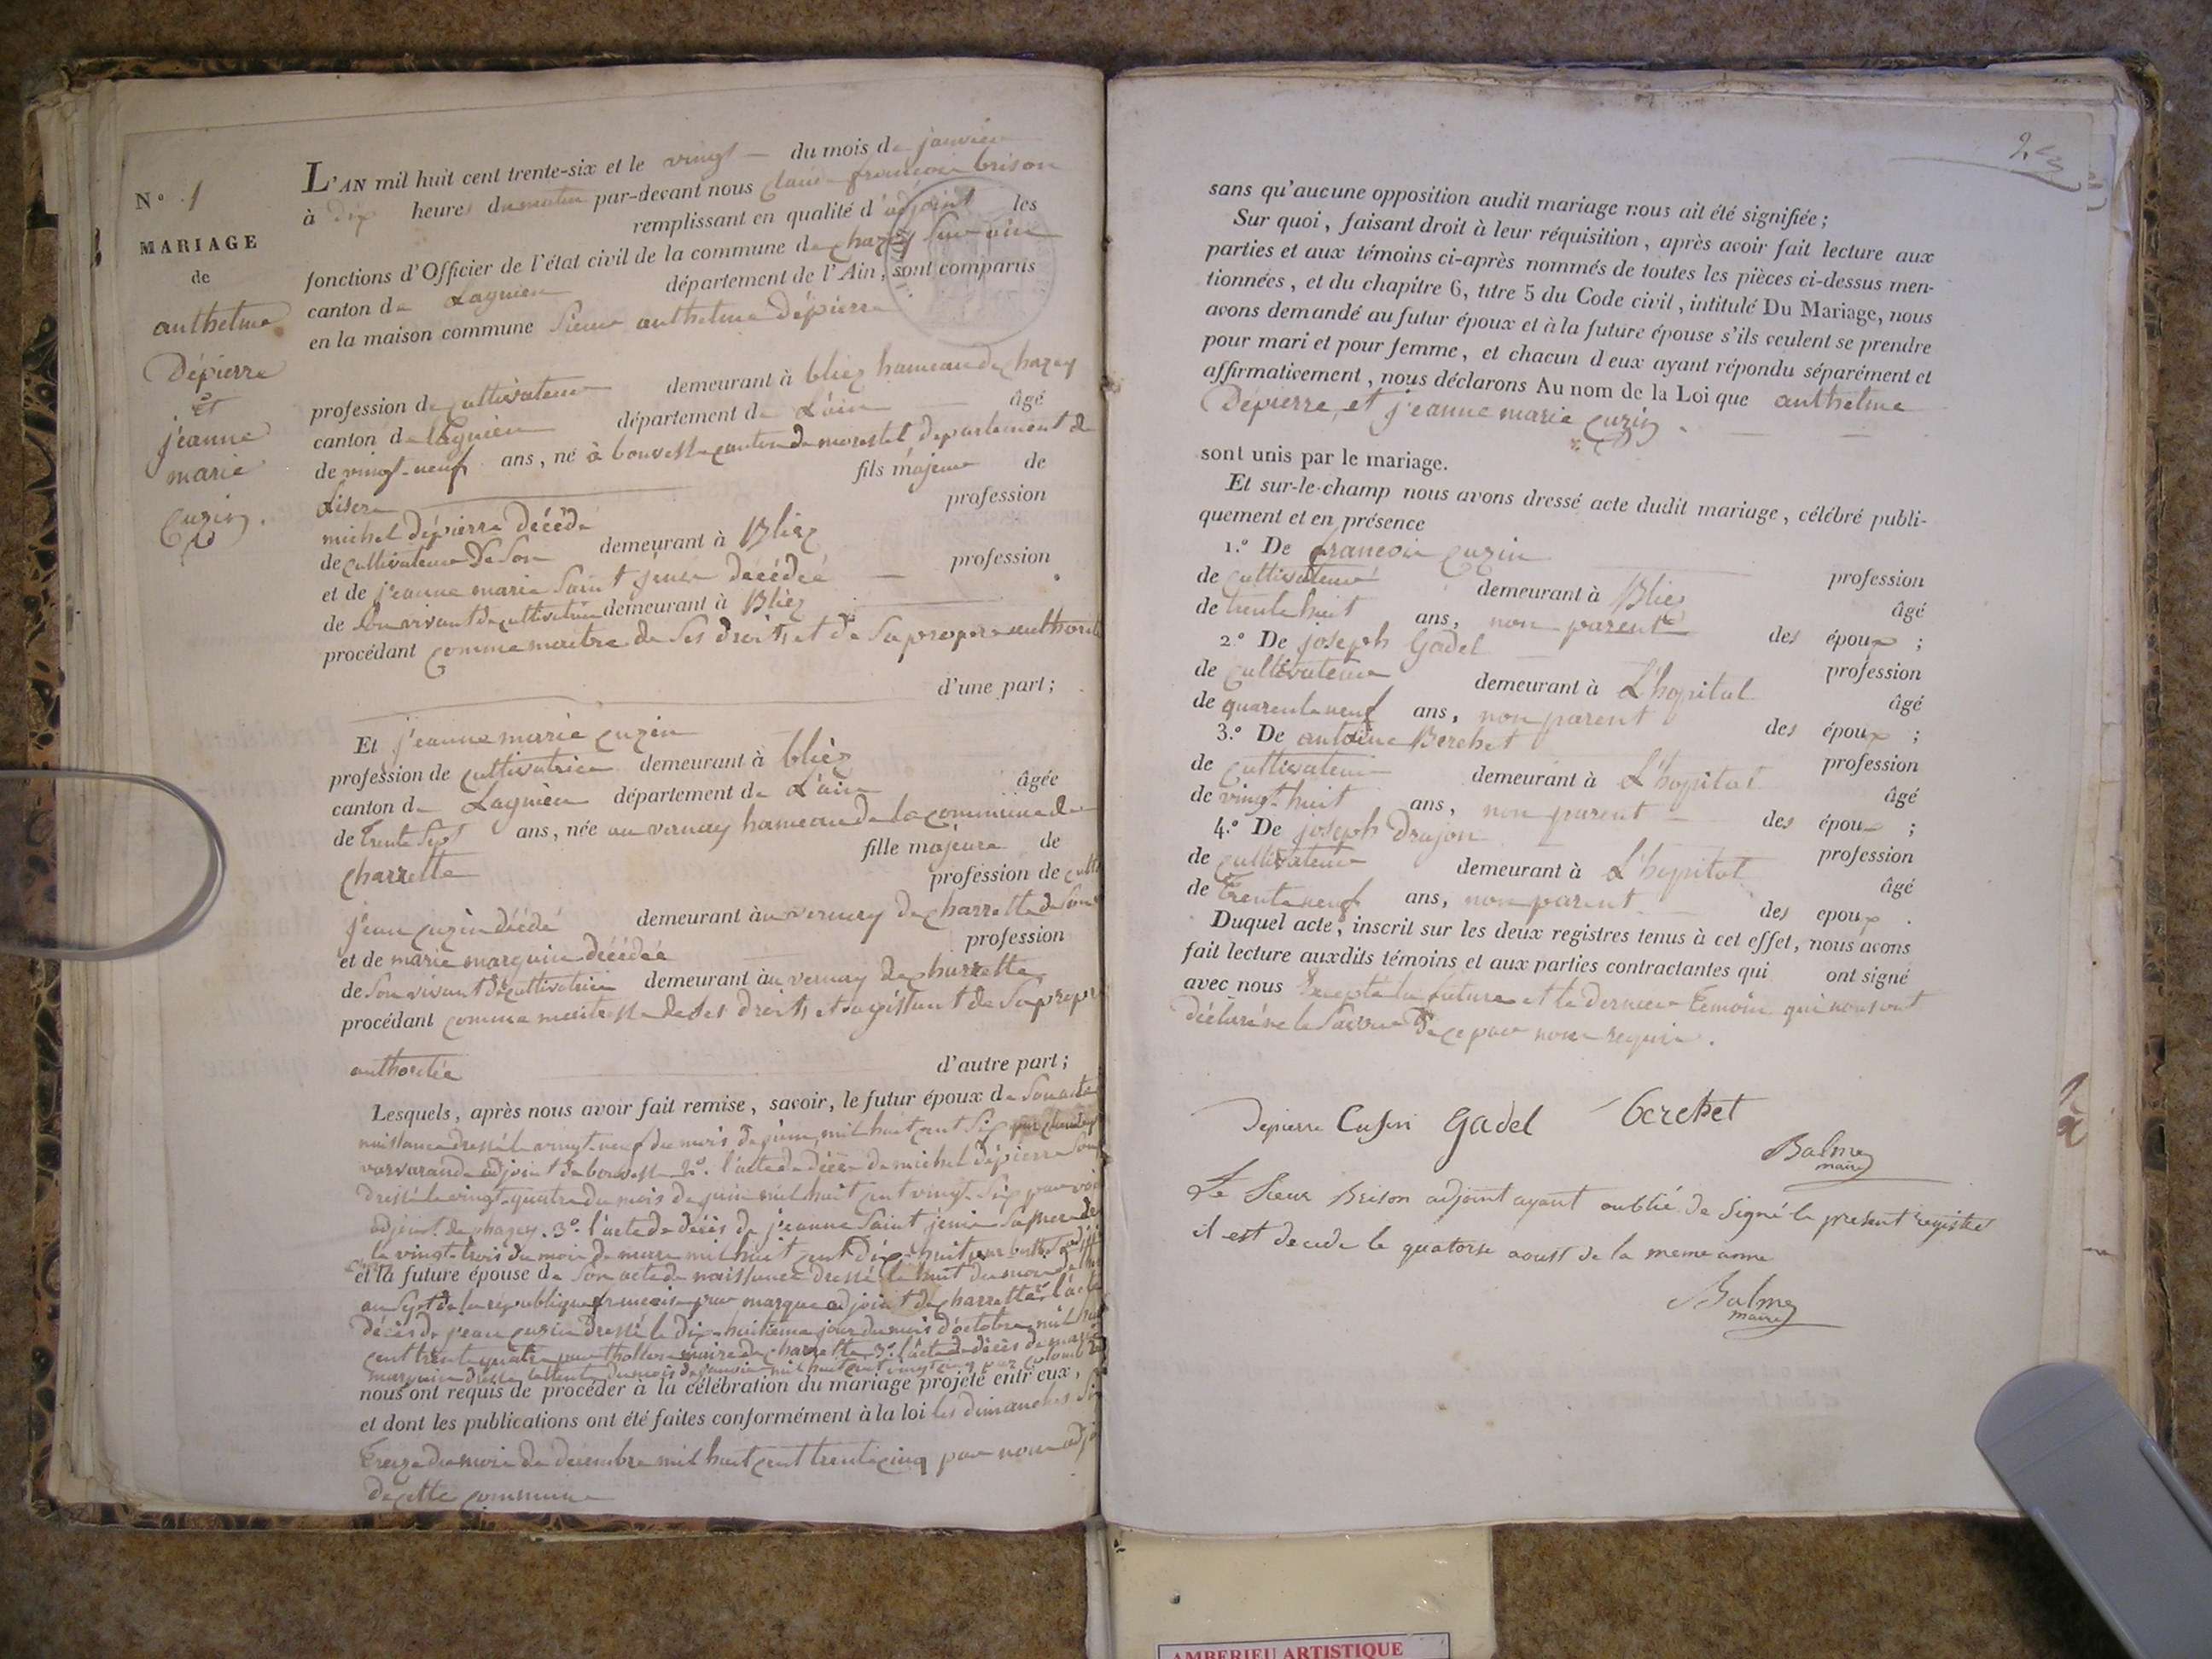 N° 1
MARIAGE
de
anthelme
Dépierre
et
jeanne
marie
Cuzin.
L'AN mil huit cent trente-six et le vingt du mois de janvier
à dix heures du matin par-devant nous Claude françois brison
remplissant en qualité d'adjoint les
fonctions d'Officier de l'état civil de la commune de chazey sur ain
canton de Lagnieu département de l'Ain, sont comparus
en la maison commune Sieur anthelme dépierre
profession de cultivateur demeurant à bliez hameau de chazey
canton de lagnieu département de L'ain âgé
de vingt-neuf ans, né à bouvesse canton de morestel departement de
Lisere fils majeur de
michel dépierre décédé profession
de cultivateur De Son demeurant à Bliez
et de jeanne marie Saint jenis décédée profession
de Son vivant de cultivatrice demeurant à Bliez
procédant comme maitre de Ses droits et de Sa propre authorité
d'une part;
Et jeanne marie cuzin
profession de cultivatrice demeurant à bliez
canton de Lagnieu département de L'ain âgée
de trente Sept ans, née au vernay hameau de la commune de
Charrette fille majeure de
jean cuzin décédé profession de
demeurant au vernay de charrette de Son
et de marie marguin décédée profession
de Son vivant de cultivatrice demeurant au vernay de charrette
procédant comme maitresse de Ses droits et agissant de Sa propre
authoritée d'autre part;
Lesquels, après nous avoir fait remise, savoir, le futur époux de Son acte
naissance dressé le vingt neuf du mois de juin mil huit cent Six
adjoint de bouvesse 2°. l'acte de décès de michel dépierre Son
dressé le vingt-quatre du mois de juin mil huit cent vingt-Six par
adjoint de chazey. 3°. l'acte de décès de jeanne Saint jenis Sa mere
le vingt-trois du mois de mars mil huit cent dix-huit
et la future épouse de Son acte de naissance dressé le huit du mois de
an Sept de la république francaise par marque adjoint de charrette 2° l'acte
décès de jean cuzin dressé le dix-huitieme jour du mois d'octobre mil huit
cent trente quatre par thollon maire de charrette 3°. l'acte de décès de marie
marguin dressé le trente du mois de janvier mil huit cent vingt cinq par
nous ont requis de procéder à la célébration du mariage projeté entr'eux,
et dont les publications ont été faites conformément à la loi les dimanches Six
treize du mois de decembre mil huit cent trente cinq par nous adjoint
de cette commune
sans qu'aucune opposition audit mariage nous ait été signifiée;
Sur quoi, faisant droit à leur réquisition, après avoir fait lecture aux
parties et aux témoins ci-après nommés de toutes les pièces ci-dessus men-
tionnées, et du chapitre 6, titre 5 du Code civil, intitulé Du Mariage, nous
avons demandé au futur époux et à la future épouse s'ils veulent se prendre
pour mari et pour femme, et chacun d'eux ayant répondu séparément et
affirmativement, nous déclarons Au nom de la Loi que anthelme
Depierre et jeanne marie cuzin.
sont unis par le mariage.
Et sur-le-champ nous avons dressé acte dudit mariage, célébré publi-
quement et en présence
1.° De francois cuzin profession
de cultivateur demeurant à Bliez âgé
de trente huit ans, non parent des époux;
2.° De joseph Gadel profession
de cultivateur demeurant à L'hopital âgé
de quarente neuf ans, non parent des époux;
3.° De antoine Berchet profession
de cultivateur demeurant à L'hopital âgé
de vingt-huit ans, non parent des époux;
4.° De joseph Drujon profession
de cultivateur demeurant à L'hopital âgé
de trente neuf ans, non parent des epoux.
Duquel acte, inscrit sur les deux registres tenus à cet effet, nous avons
fait lecture auxdits témoins et aux parties contractantes qui ont signé
avec nous Excepté la future et le dernier témoin qui nous ont
déclaré ne le Savoir de ce par nous requis.
Depierre Cusin Gadel Berchet
Balme
maire
Le Sieur Brison adjoint ayant oublié de Signé le present registre
il est decede le quatorse aoust de la meme anne
Balme
maire
AMBERIEU ARTISTIQUE